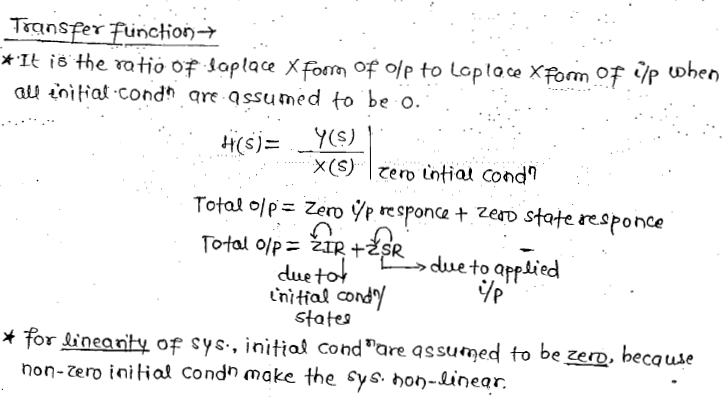 Transfer function→
* It is the ratio of laplace Xform of o/p to Laplace Xform of i/p when
all initial condn are assumed to be 0.
H(s) = Y(s) / X(s) | zero intial condn
Total o/p = Zero i/p responce + zero state responce
Total o/p = ZIR + ZSR
due to → due to applied
initial condn/ i/p
states
* for linearity of sys., initial condn are assumed to be zero, because
non-zero initial condn make the sys. non-linear.